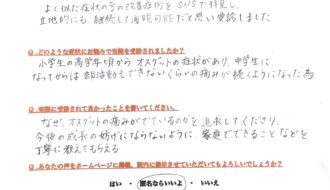 よく似た症状の方の改善症例をSNSで拝見し、
立地的にも継続して通院可能だと思い受診しました
●どのような症状にお悩みで当院を受診されましたか？
小学生の高学年頃からオスグットの症状があり、中学生に
なってからは部活動もできないくらいの痛みが続くようになった為
●実際に受診されて良かったことを書いてください。
なぜ、オスグットの痛みがでているのかを追求してくださり、
今後の成長の妨げにならないように家庭でできることなどを
丁寧に教えてもらえる
●あなたの声をホームページに掲載、院内に掲示させていただいてもよろしいでしょうか？
はい ・ 匿名ならいいよ ・ いいえ